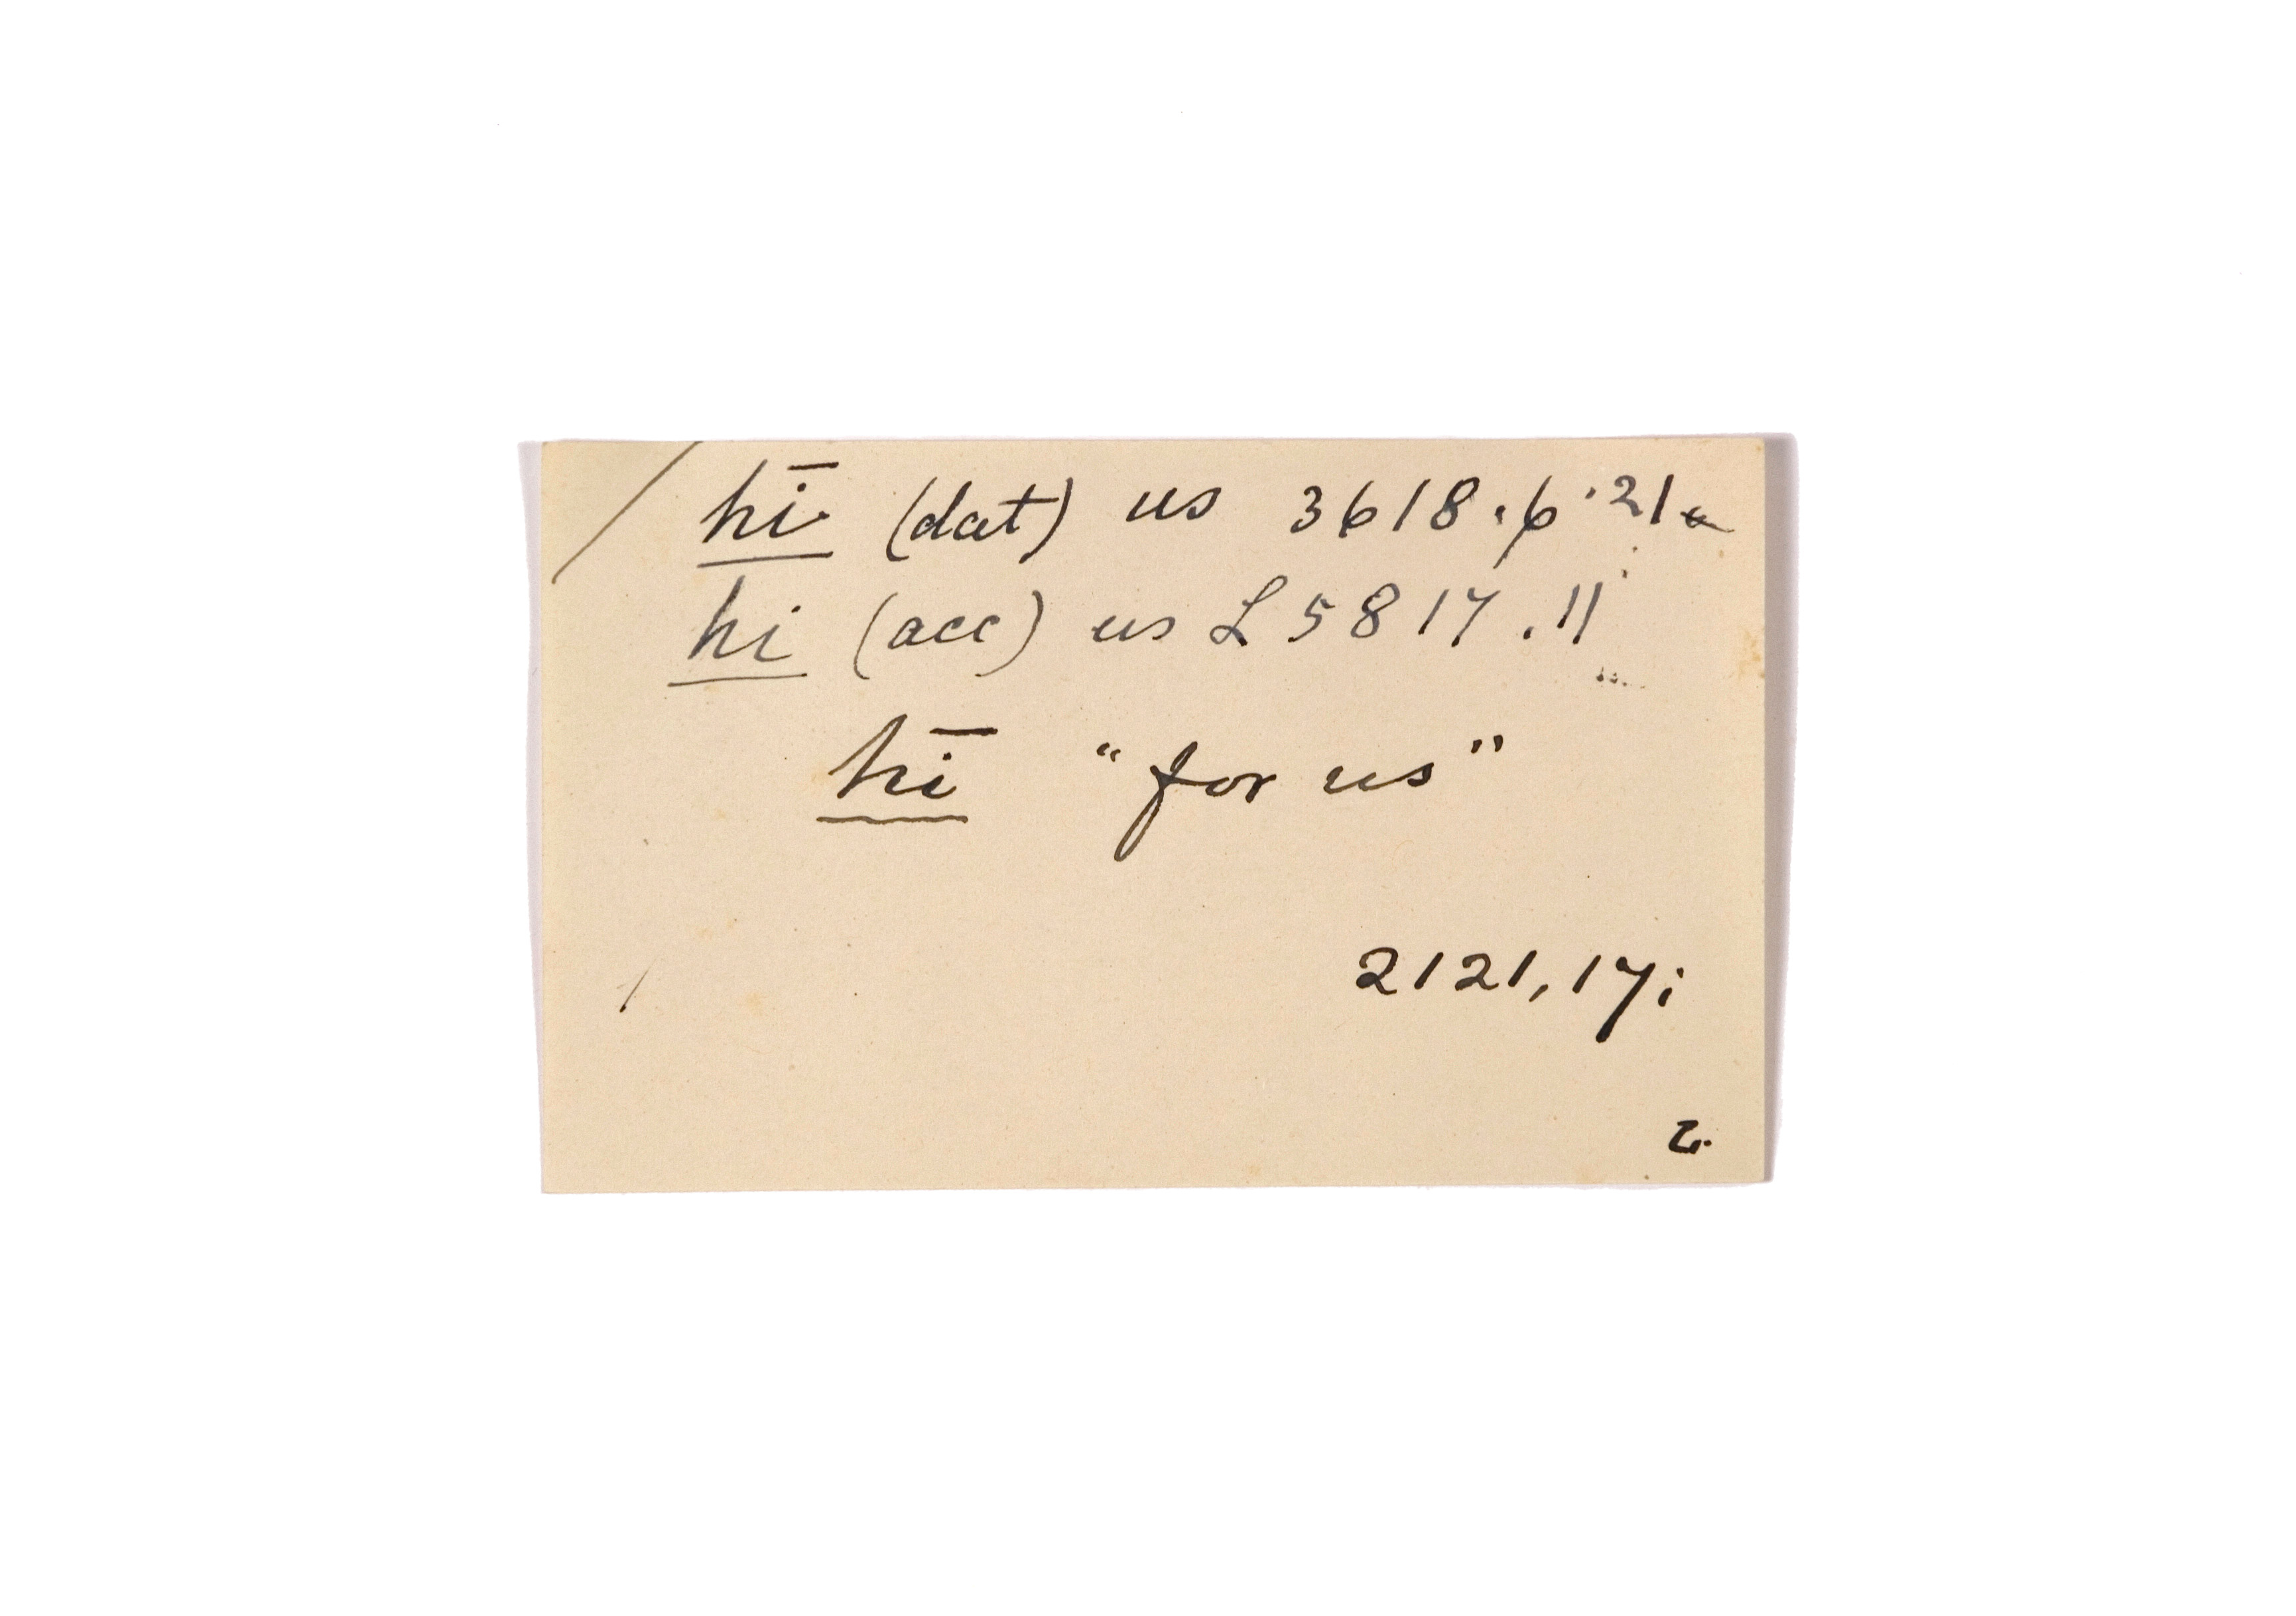 hī (dat) us 3618.6.21a
hi (acc) us L5817.11
hī "for us"
2121,17i
2.